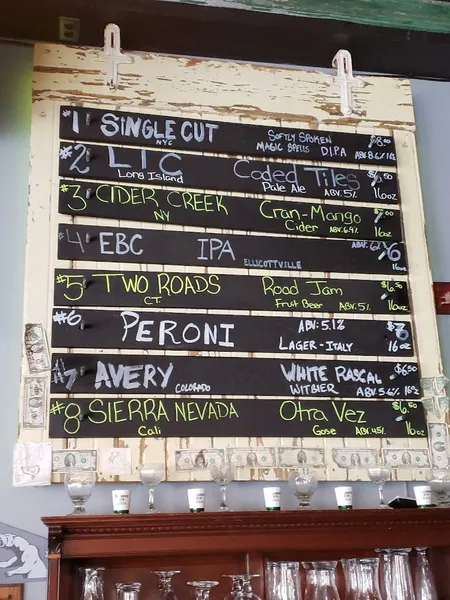 #1 SINGLECUT SOFTLY SPOKEN $8.00
NYC MAGIC SPELLS D.I.PA ABV:8.6%
#2 LIC Coded Tiles
Long Island Pale Ale ABV:5% 16oz
#3 CIDER CREEK Cran-Mango
NY Cider ABV:6.9% 16oz
#4 EBC IPA $6
ELLICOTTVILLE 16oz
#5 TWO ROADS Road Jam $6.50
CT. Fruit Beer ABV:5% 16oz
#6 PERONI ABV:5.1%
LAGER-ITALY 16oz
#7 AVERY WHITE RASCAL $6.50
COLORADO WITBIER ABV:5.6% 16oz
#8 SIERRA NEVADA Otra Vez $6.50
Cali Gose ABV:4.5% 16oz